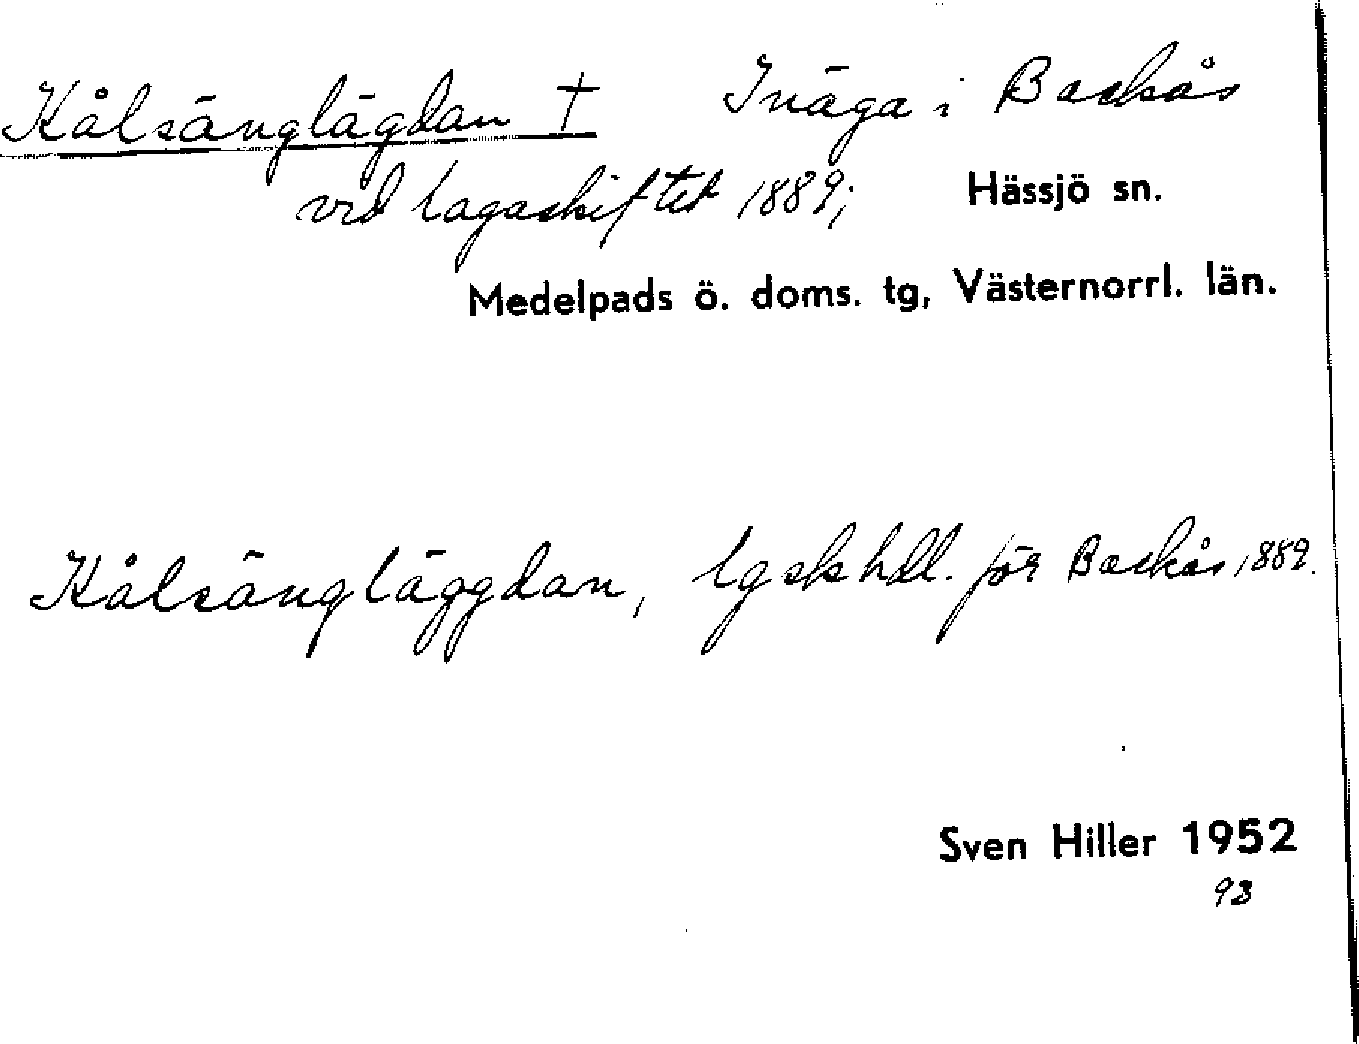 Kålsänglägdan † Inäga i Backås
vid lagaskiftet 1889; Hässjö sn.
Medelpads ö. doms. tg, Västernorrl. län.
Kålsängläggdan, lgskhdl. för Backås 1889.
Sven Hiller 1952
93